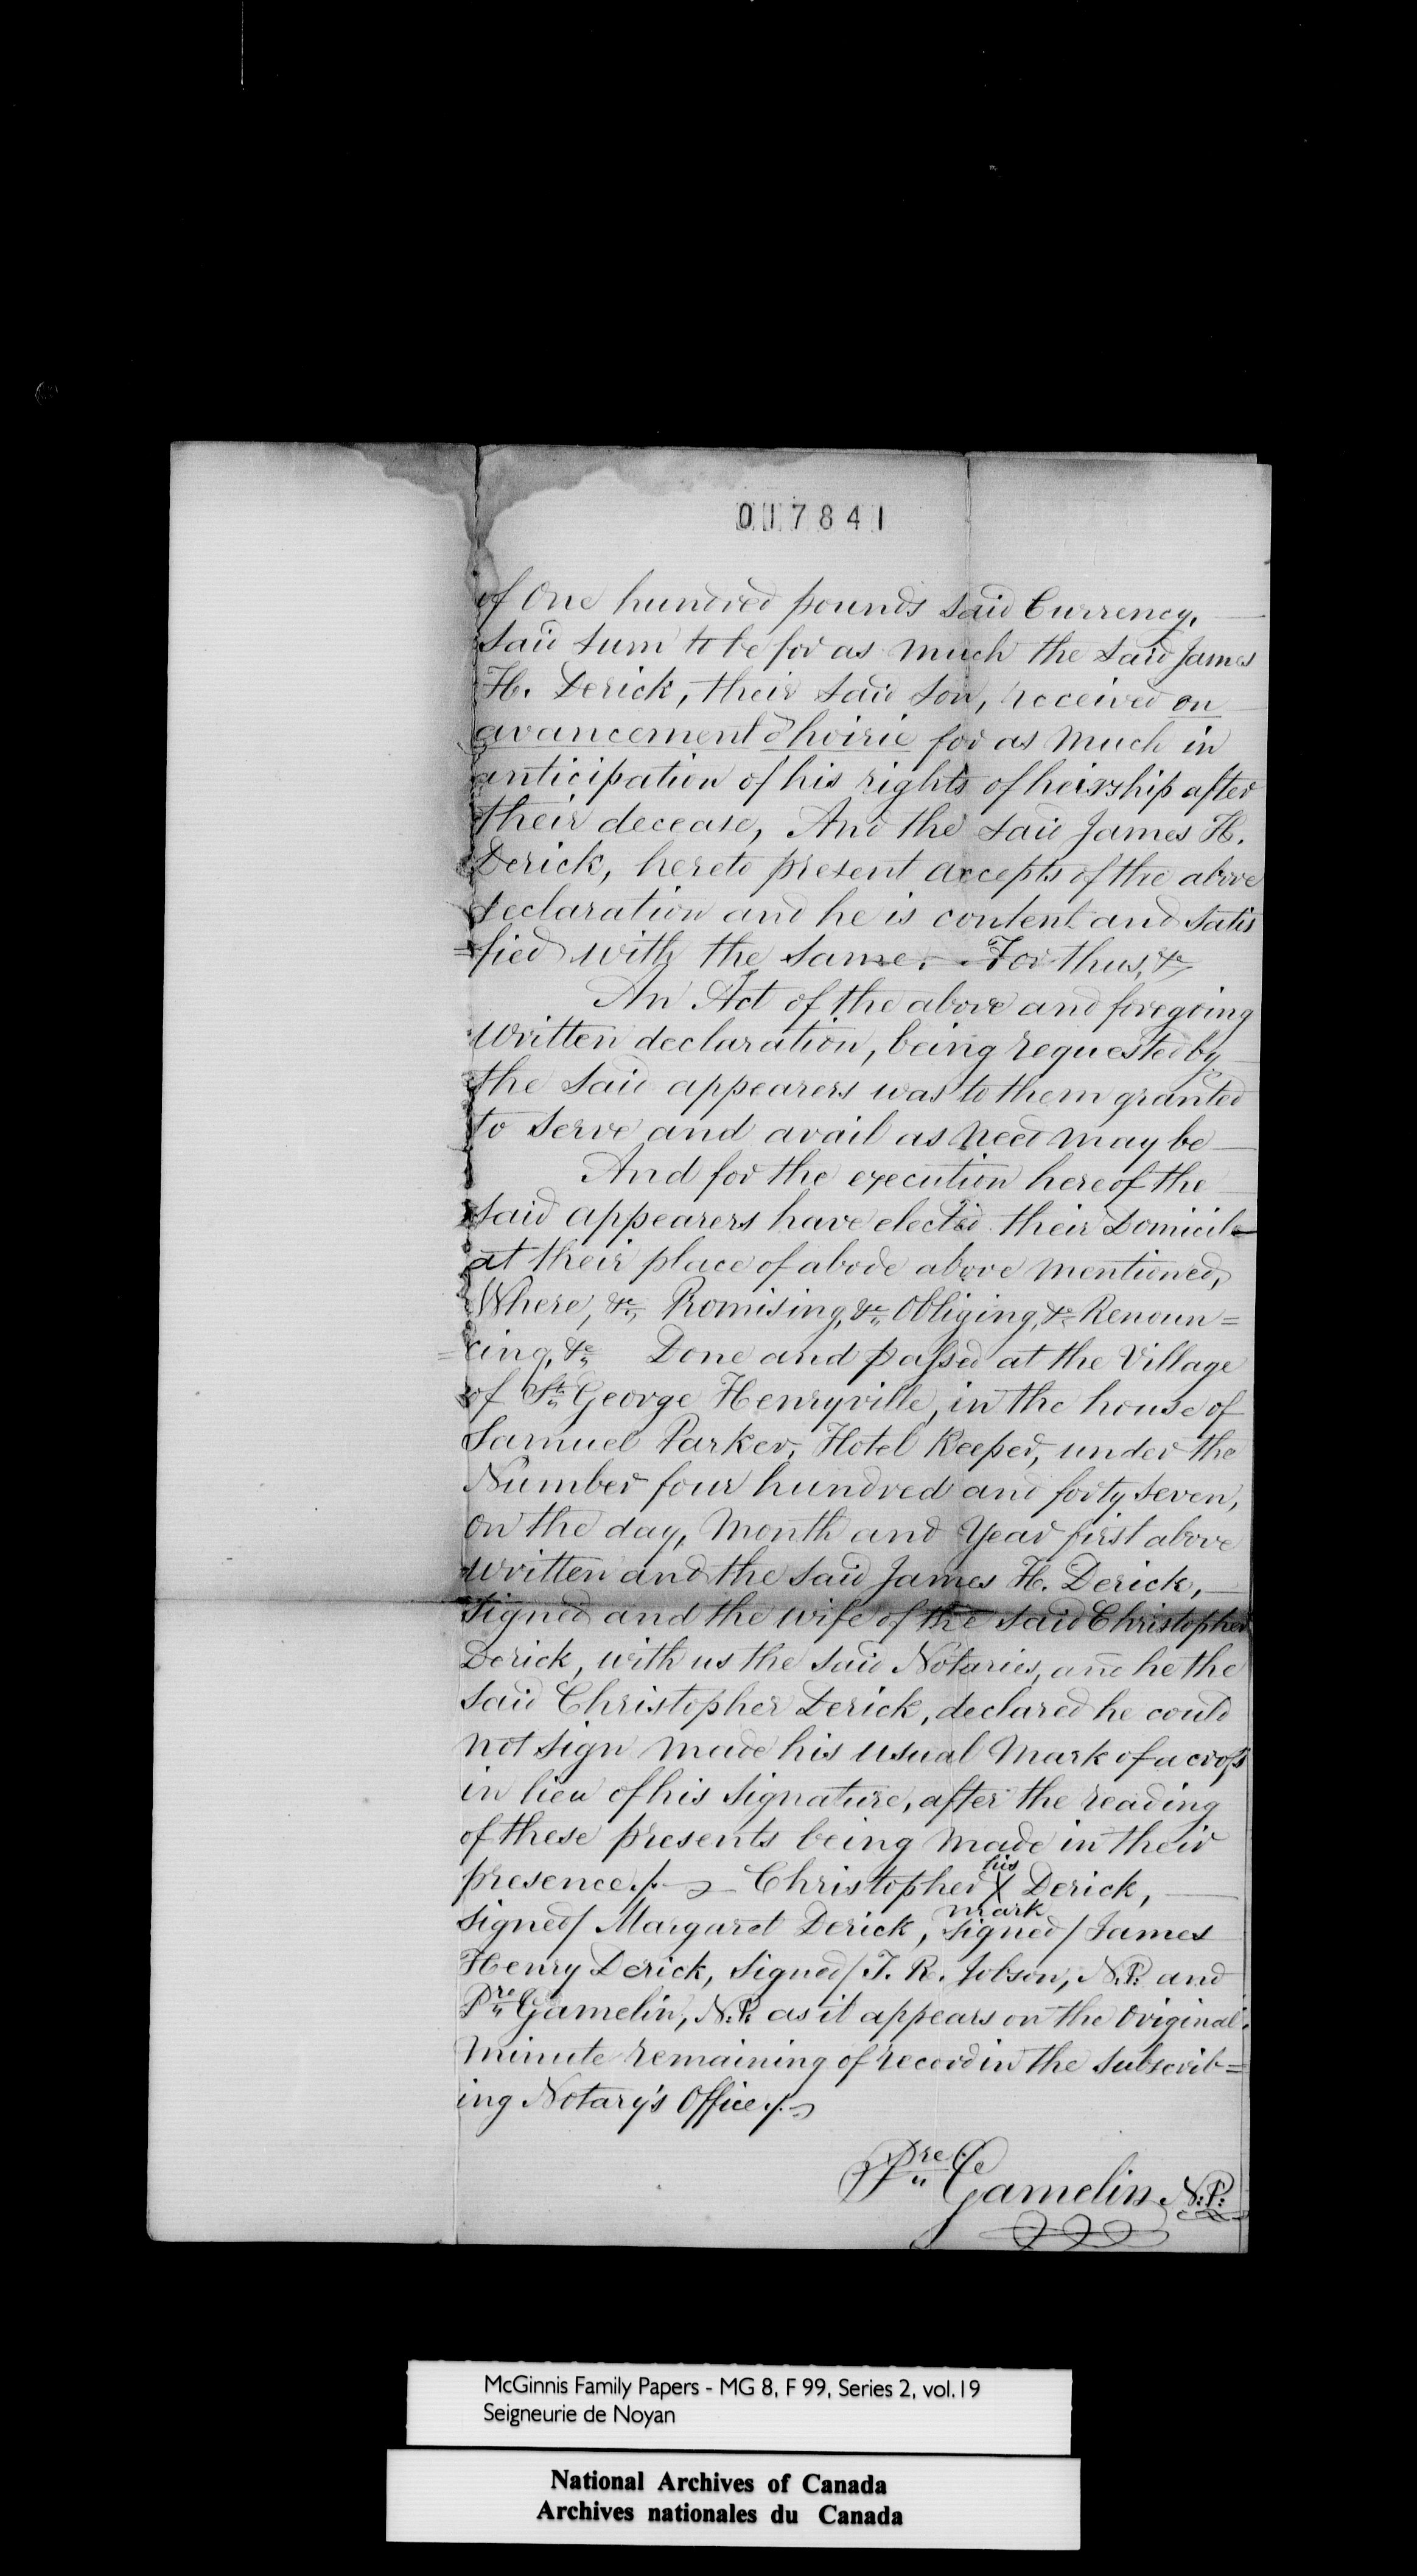 017841
of One hundred pounds said Currency,
said sum to be for as much the said James
H. Derick, their said son, received on
avancement d'hoirie for as much in
anticipation of his rights of heirship after
their decease, And the said James H.
Derick, hereto present accepts of the above
declaration and he is content and satis
=fied with the same. For thus, &c
An Act of the above and foregoing
written declaration, being requested by
the said appearers was to them granted
to serve and avail as need may be
And for the execution hereof the
said appearers have elected their Domicile
at their place of abode above mentioned,
Where, &c, Promising, &c, Obliging, &c Renoun=
=cing, &c, Done and passed at the Village
of St. George Henryville, in the house of
Samuel Parker, Hotel Keeper, under the
Number four hundred and forty seven,
on the day, month and Year first above
written and the said James H. Derick,
signed and the wife of the said Christopher
Derick, with us the said Notaries, and he the
said Christopher Derick, declared he could
not sign made his usual Mark of a cross
in lieu of his signature, after the reading
of these presents being made in their
presence./. Christopher his X mark Derick,
signed/ Margaret Derick, signed/ James
Henry Derick, signed/ T. R. Jobson, N.P. and
Pre Gamelin, N.P. as it appears on the Original
minute remaining of record in the subscrib=
ing Notary's Office./.
Pre Ce
Gamelin N.P.
McGinnis Family Papers - MG 8, F 99, Series 2, vol.19
Seigneurie de Noyan
National Archives of Canada
Archives nationales du Canada